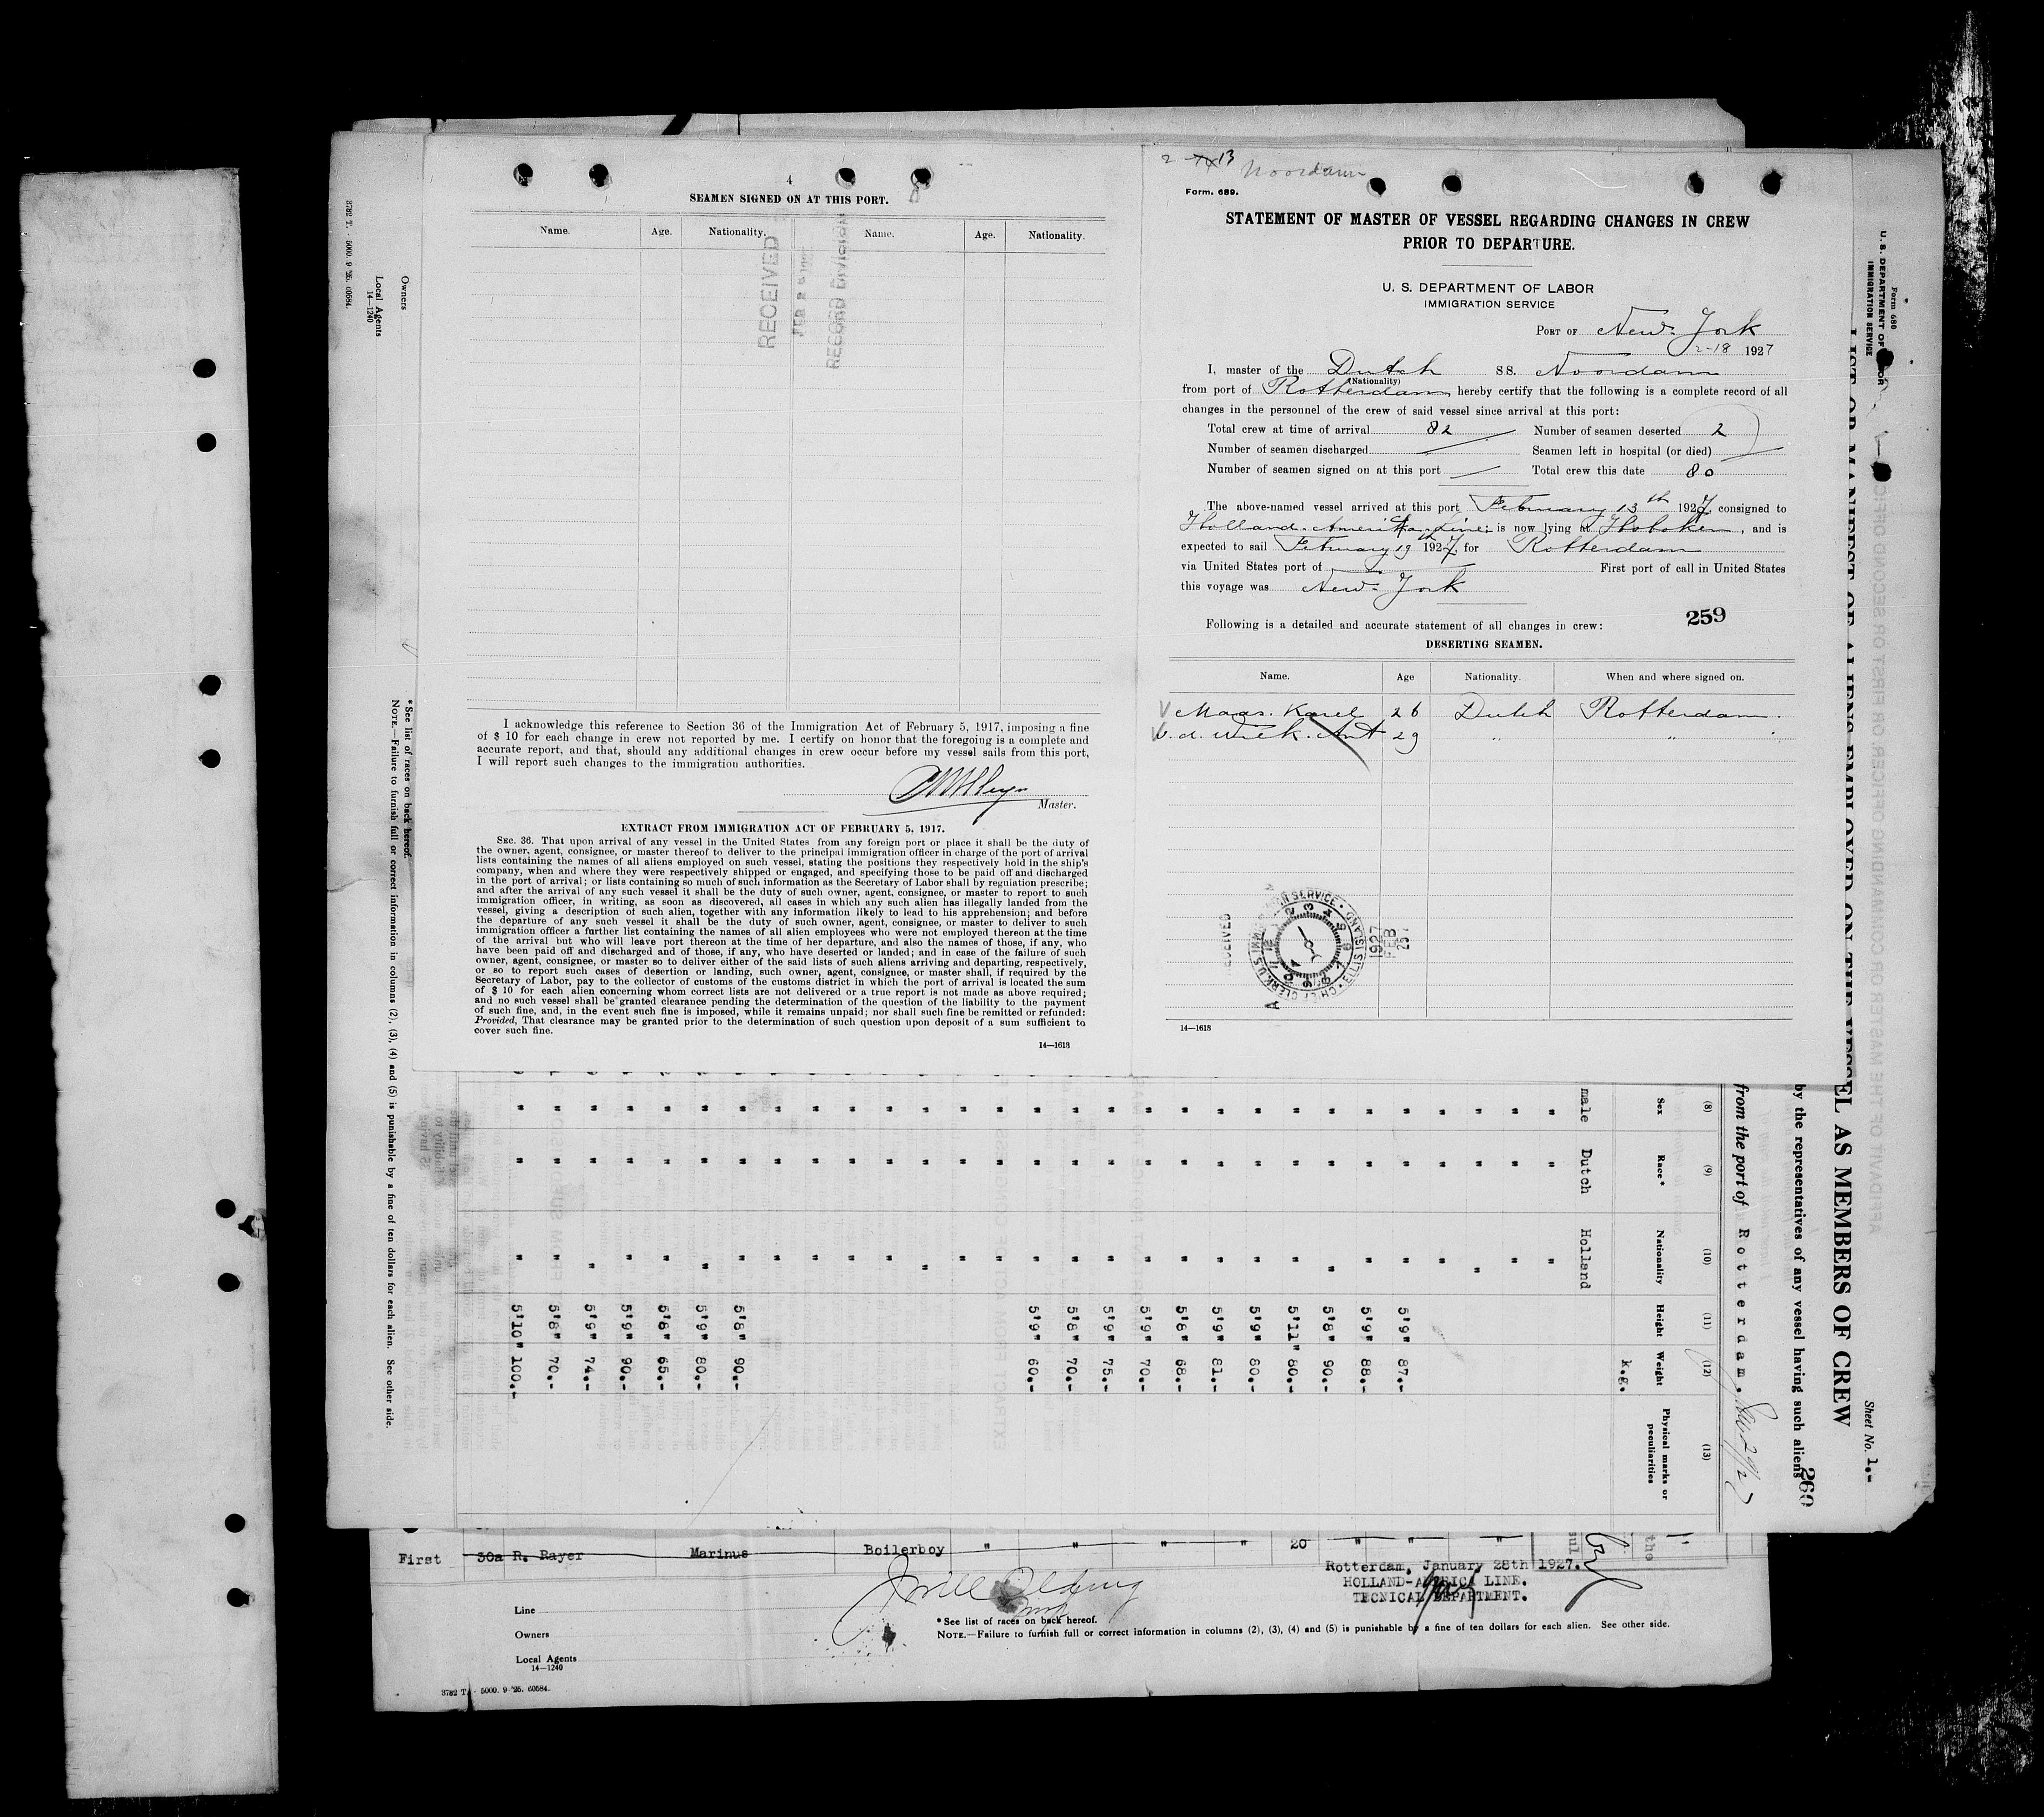 4
SEAMEN SIGNED ON AT THIS PORT.
Name. Age. Nationality. Name. Age. Nationality.
RECEIVED
RECORD DIVISION
I acknowledge this reference to Section 36 of the Immigration Act of February 5, 1917, imposing a fine
of $ 10 for each change in crew not reported by me. I certify on honor that the foregoing is a complete and
accurate report, and that, should any additional changes in crew occur before my vessel sails from this port,
I will report such changes to the immigration authorities.
Master.
EXTRACT FROM IMMIGRATION ACT OF FEBRUARY 5, 1917.
SEC. 36. That upon arrival of any vessel in the United States from any foreign port or place it shall be the duty of
the owner, agent, consignee, or master thereof to deliver to the principal immigration officer in charge of the port of arrival
lists containing the names of all aliens employed on such vessel, stating the positions they respectively hold in the ship's
company, when and where they were respectively shipped or engaged, and specifying those to be paid off and discharged
in the port of arrival; or lists containing so much of such information as the Secretary of Labor shall by reguiation prescribe;
and after the arrival of any such vessel it shall be the duty of such owner, agent, consignee, or master to report to such
immigration officer, in writing, as soon as discovered, all cases in which any such alien has illegally landed from the
vessel, giving a description of such alien, together with any information likely to lead to his apprehension; and before
the departure of any such vessel it shall be the duty of such owner, agent, consignee, or master to deliver to such
immigration officer a further list containing the names of all alien employees who were not employed thereon at the time
of the arrival but who will leave port thereon at the time of her departure, and also the names of those, if any, who
have been paid off and discharged and of those, if any, who have deserted or landed; and in case of the failure of such
owner, agent, consignee, or master so to deliver either of the said lists of such aliens arriving and departing, respectively,
or so to report such cases of desertion or landing, such owner, agent, consignee, or master shall, if required by the
Secretary of Labor, pay to the collector of customs of the customs district in which the port of arrival is located the sum
of $ 10 for each alien concerning whom correct lists are not delivered or a true report is not made as above required;
and no such vessel shall be granted clearance pending the determination of the question of the liability to the payment
of such fine, and, in the event such fine is imposed, while it remains unpaid; nor shall such fine be remitted or refunded:
Provided, That clearance may be granted prior to the determination of such question upon deposit of a sum sufficient to
cover such fine.
14—1618
Noordam
Form. 689.
STATEMENT OF MASTER OF VESSEL REGARDING CHANGES IN CREW
PRIOR TO DEPARTURE.
U. S. DEPARTMENT OF LABOR
IMMIGRATION SERVICE
PORT OF New-York
2-18 1927
I, master of the Dutch SS. Noordam
(Nationality)
from port of Rotterdam, hereby certify that the following is a complete record of all
changes in the personnel of the crew of said vessel since arrival at this port:
Total crew at time of arrival 82 Number of seamen deserted 2
Number of seamen discharged Seamen left in hospital (or died)
Number of seamen signed on at this port Total crew this date 80
The above-named vessel arrived at this port February 13th 1927, consigned to
Holland-Amerika-Line; is now lying at Hoboken, and is
expected to sail February 19th 1927, for Rotterdam
via United States port of First port of call in United States
this voyage was New-York
259
Following is a detailed and accurate statement of all changes in crew:
DESERTING SEAMEN.
Name. Age Nationality. When and where signed on.
Maas. Karel 26 Dutch Rotterdam.
v. d. Wiek. Ant 29 " "
RECEIVED
CHIEF CLERK, U.S. IMMIGRATION SERVICE · ELLIS ISLAND
1927
FEB
25
14—1618
Form 680
U. S. DEPARTMENT OF LABOR
IMMIGRATION SERVICE
Sheet No. 1.-
LIST OR MANIFEST OF ALIENS EMPLOYED ON THE VESSEL AS MEMBERS OF CREW
by the representatives of any vessel having such aliens
260
from the port of Rotterdam.
(8) (9) (10) (11) (12) (13)
Sex Race* Nationality Height Weight Physical marks or peculiarities
k.g.
male Dutch Holland
" " "
" " "
" " "
" " "
" " " 5'9" 87.-
" " " 5'9" 88.-
" " " 5'8" 90.-
" " " 5'11" 80.-
" " " 5'9" 80.-
" " " 5'9" 81.-
" " " 5'8" 68.-
" " " 5'9" 70.-
" " " 5'9" 75.-
" " " 5'8" 70.-
" " " 5'9" 60.-
" " "
" " "
" " "
" " "
" " "
" " "
" " "
" " " 5'8" 90.-
" " " 5'9" 80.-
" " " 5'8" 65.-
" " " 5'9" 90.-
" " " 5'9" 74.-
" " " 5'8" 70.-
" " " 5'10" 100.-
* See list of races on back hereof.
NOTE.—Failure to furnish full or correct information in columns (2), (3), (4) and (5) is punishable by a fine of ten dollars for each alien. See other side.
Owners
Local Agents
14—1240
3782 T. - 5000. 9-'25. 60584.
First 30a R. Rayer Marinus Boilerboy " " " " 20 " " "
Rotterdam, January 28th 1927.
HOLLAND-AMERICA LINE.
TECNICAL DEPARTMENT.
Line
Owners
Local Agents
14—1240
* See list of races on back hereof.
NOTE.—Failure to furnish full or correct information in columns (2), (3), (4) and (5) is punishable by a fine of ten dollars for each alien. See other side.
3782 T. - 5000. 9-'25. 60584.